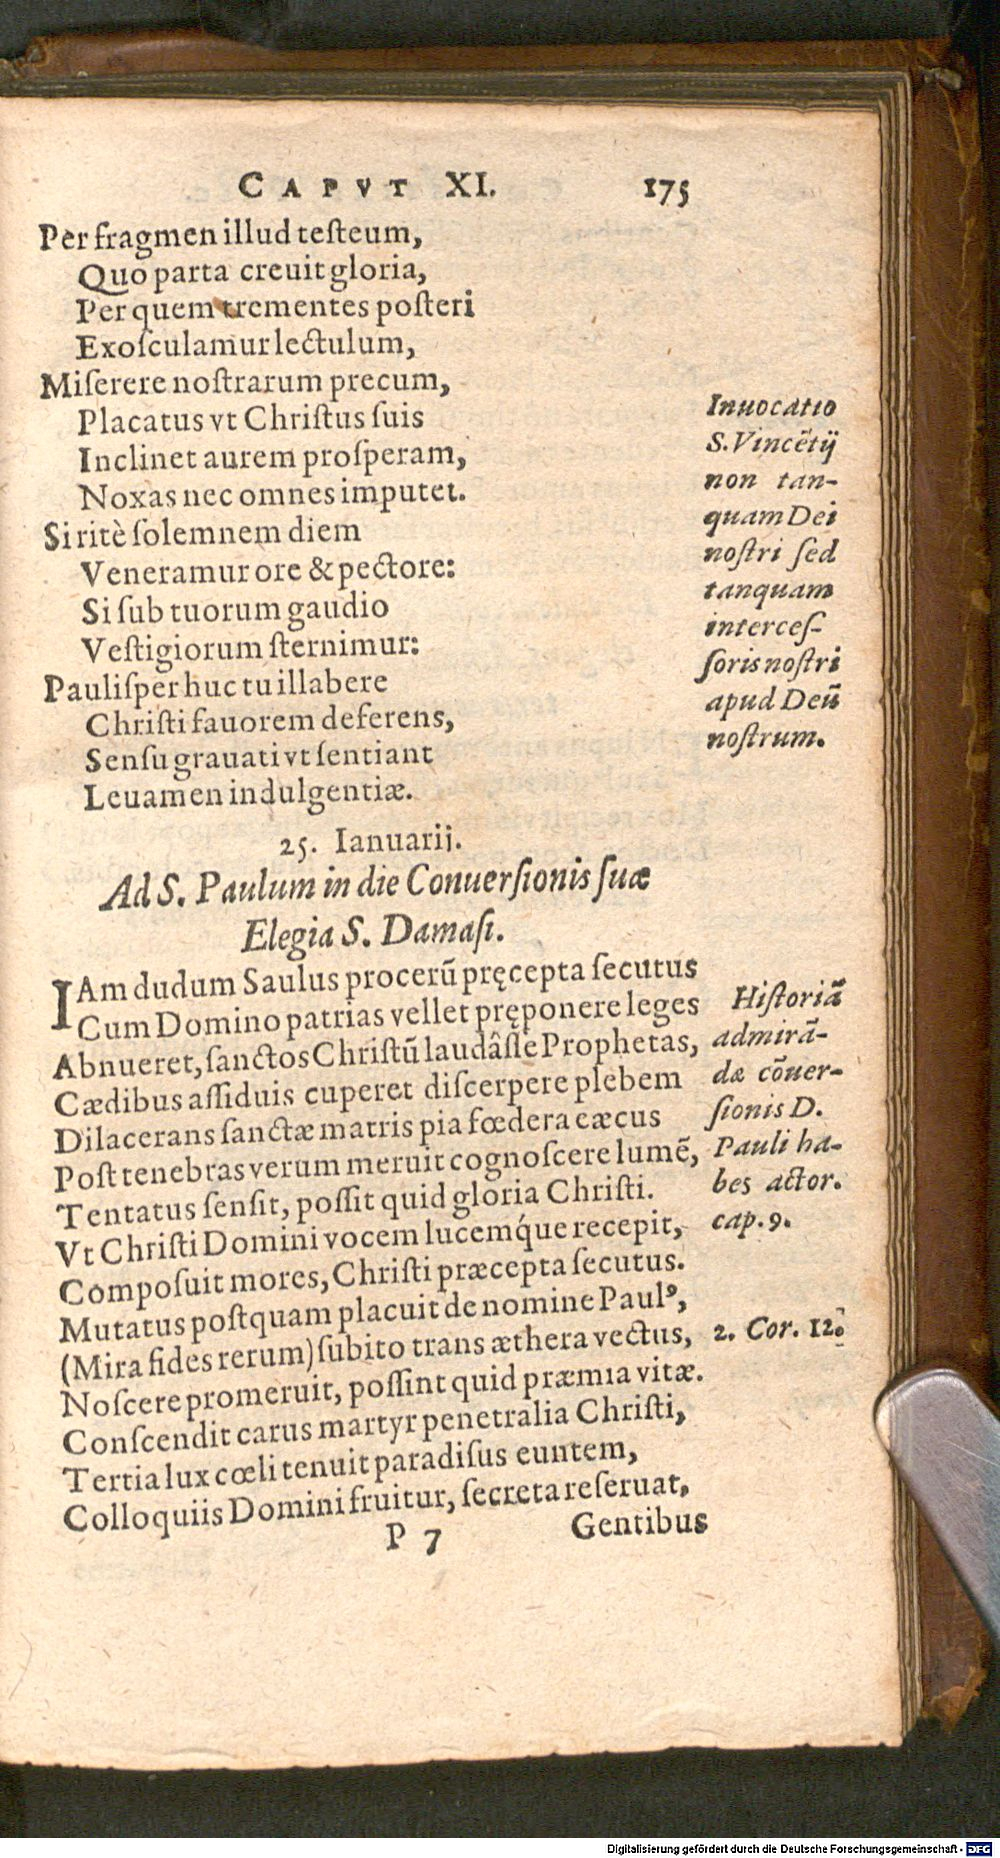 CAPVT XI. 175
Per fragmen illud teſteum,
Quo parta creuit gloria,
Per quem trementes poſteri
Exoſculamur lectulum,
Miſerere noſtrarum precum,
Placatus vt Chriſtus ſuis
Inclinet aurem proſperam,
Noxas nec omnes imputet.
Si ritè ſolemnem diem
Veneramur ore & pectore:
Si ſub tuorum gaudio
Veſtigiorum ſternimur:
Pauliſper huc tu illabere
Chriſti fauorem deferens,
Senſu grauati vt ſentiant
Leuamen indulgentiæ.
Inuocatio
S. Vincẽtij
non tan-
quam Dei
noſtri ſed
tanquam
interceſ-
ſoris noſtri
apud Deũ
noſtrum.
25. Ianuarij.
Ad S. Paulum in die Conuerſionis ſuæ
Elegia S. Damaſi.
IAm dudum Saulus procerũ pręcepta ſecutus
Cum Domino patrias vellet pręponere leges
Abnueret, ſanctos Chriſtũ laudâſſe Prophetas,
Cædibus aſſiduis cuperet diſcerpere plebem
Dilacerans ſanctæ matris pia fœdera eæcus
Poſt tenebras verum meruit cognoſcere lumẽ,
Tentatus ſenſit, poſſit quid gloria Chriſti.
Vt Chriſti Domini vocem lucemq́ue recepit,
Compoſuit mores, Chriſti præcepta ſecutus.
Mutatus poſtquam placuit de nomine Paulꝰ,
(Mira fides rerum) ſubito trans æthera vectus,
Noſcere promeruit, poſſint quid præmia vitæ.
Conſcendit carus martyr penetralia Chriſti,
Tertia lux cœli tenuit paradiſus euntem,
Colloquiis Domini fruitur, ſecreta reſeruat,
Hiſtoriã
admirã-
dæ cõuer-
ſionis D.
Pauli ha-
bes actor.
cap. 9.
2. Cor. 12.
P 7 Gentibus
Digitalisierung gefördert durch die Deutsche Forschungsgemeinschaft - DFG